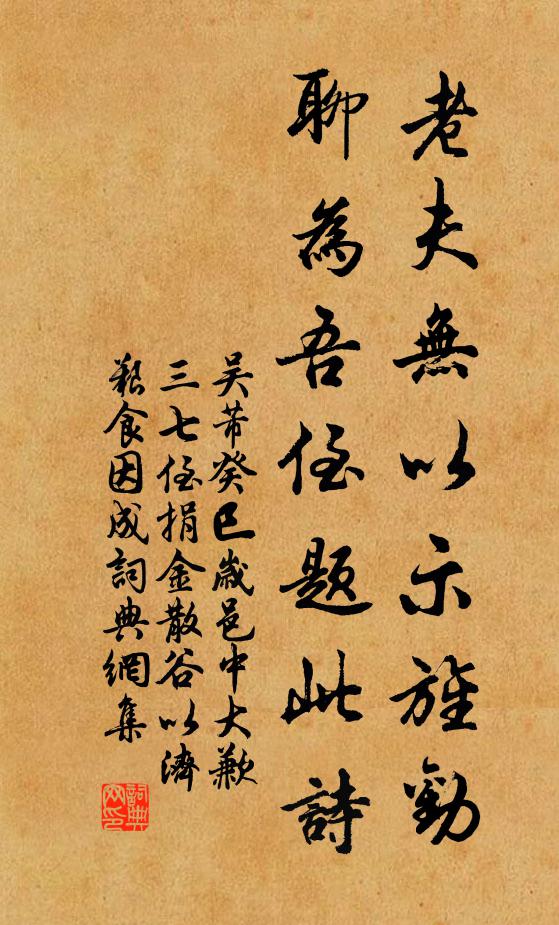 老夫無以示旌勸
聊為吾侄題此詩
吴芾癸巳歲邑中大歉
三七侄捐金散谷以濟
艱食因成詞典網集
詞典网印